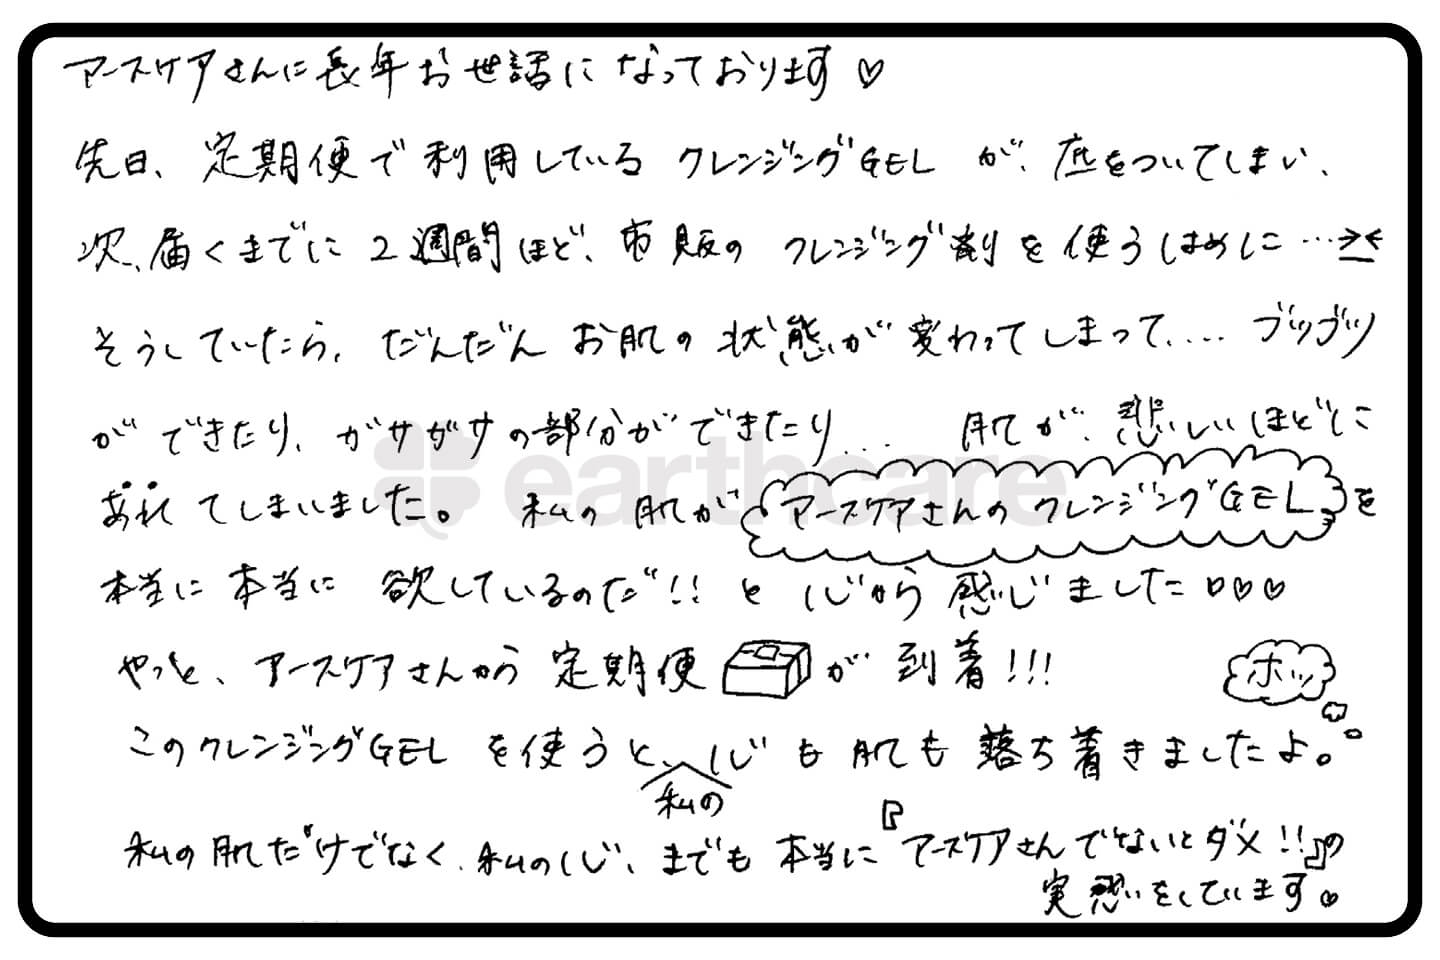 アースケアさんに長年お世話になっております♡
先日、定期便で利用しているクレンジングGELが、底をついてしまい、
次、届くまでに2週間ほど、市販のクレンジング剤を使うはめに…><
そうしていたら、だんだんお肌の状態が変わってしまって、… ブツブツ
ができたり、ガサガサの部分ができたり… 肌が、悲しいほどに
あれてしまいました。 私の肌がアースケアさんのクレンジングGELを
本当に本当に欲しているのだ!!と心から感じました♡♡♡
やっと、アースケアさんから定期便が到着!!!
ホッ
このクレンジングGELを使うと、私の心も肌も落ち着きましたよ。
私の肌だけでなく、私の心、までも本当に『アースケアさんでないとダメ!!』の
実感をしています♡
earthcare